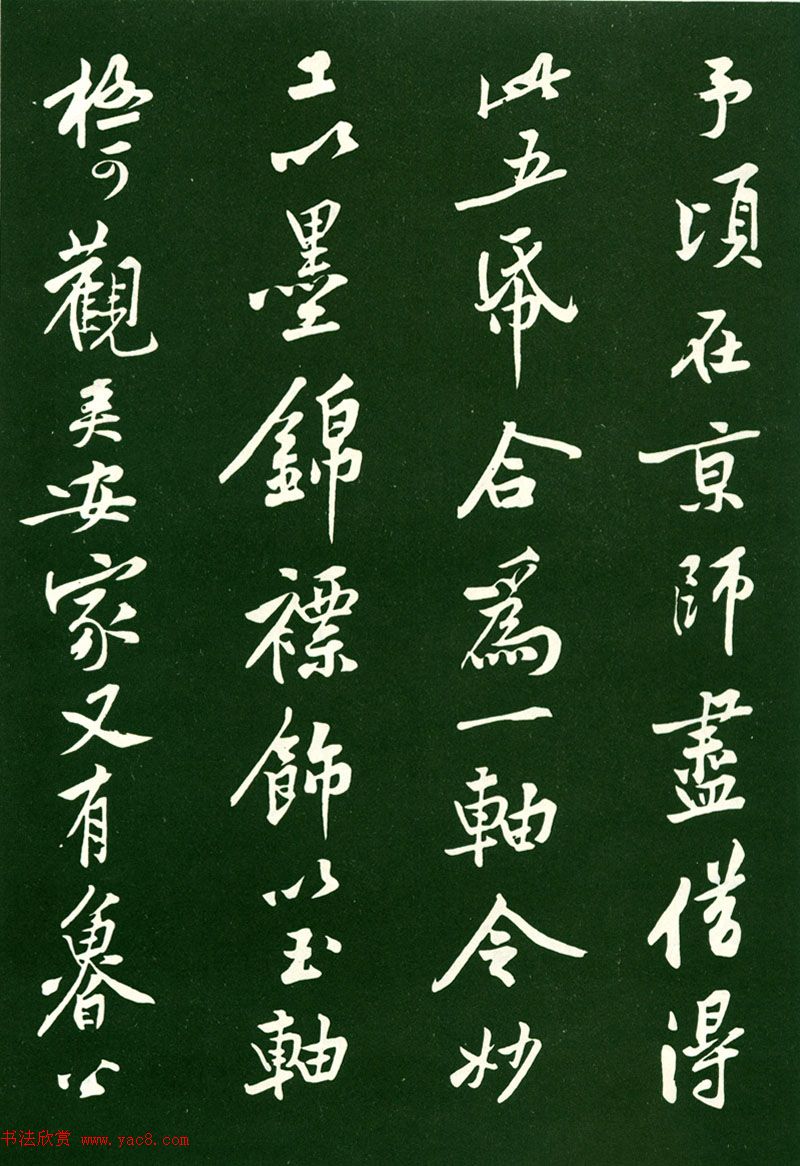 予頃在京師盡借得
此五帋合為一軸令妙
工以墨錦褾飾以玉軸
極可觀矣安家又有魯公
书法欣赏 www.yac8.com